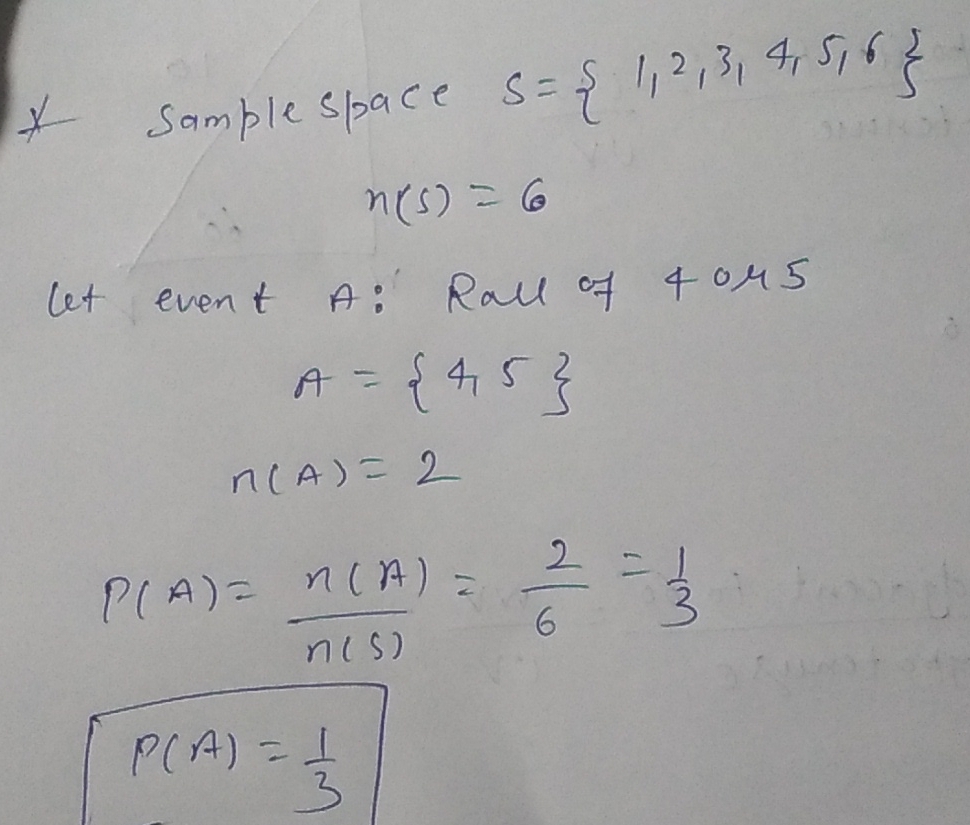 * Sample space S = { 1, 2, 3, 4, 5, 6 }
n(S) = 6
Let event A : Roll of 4 or 5
A = { 4, 5 }
n(A) = 2
P(A) = n(A) / n(S) = 2 / 6 = 1 / 3
P(A) = 1 / 3